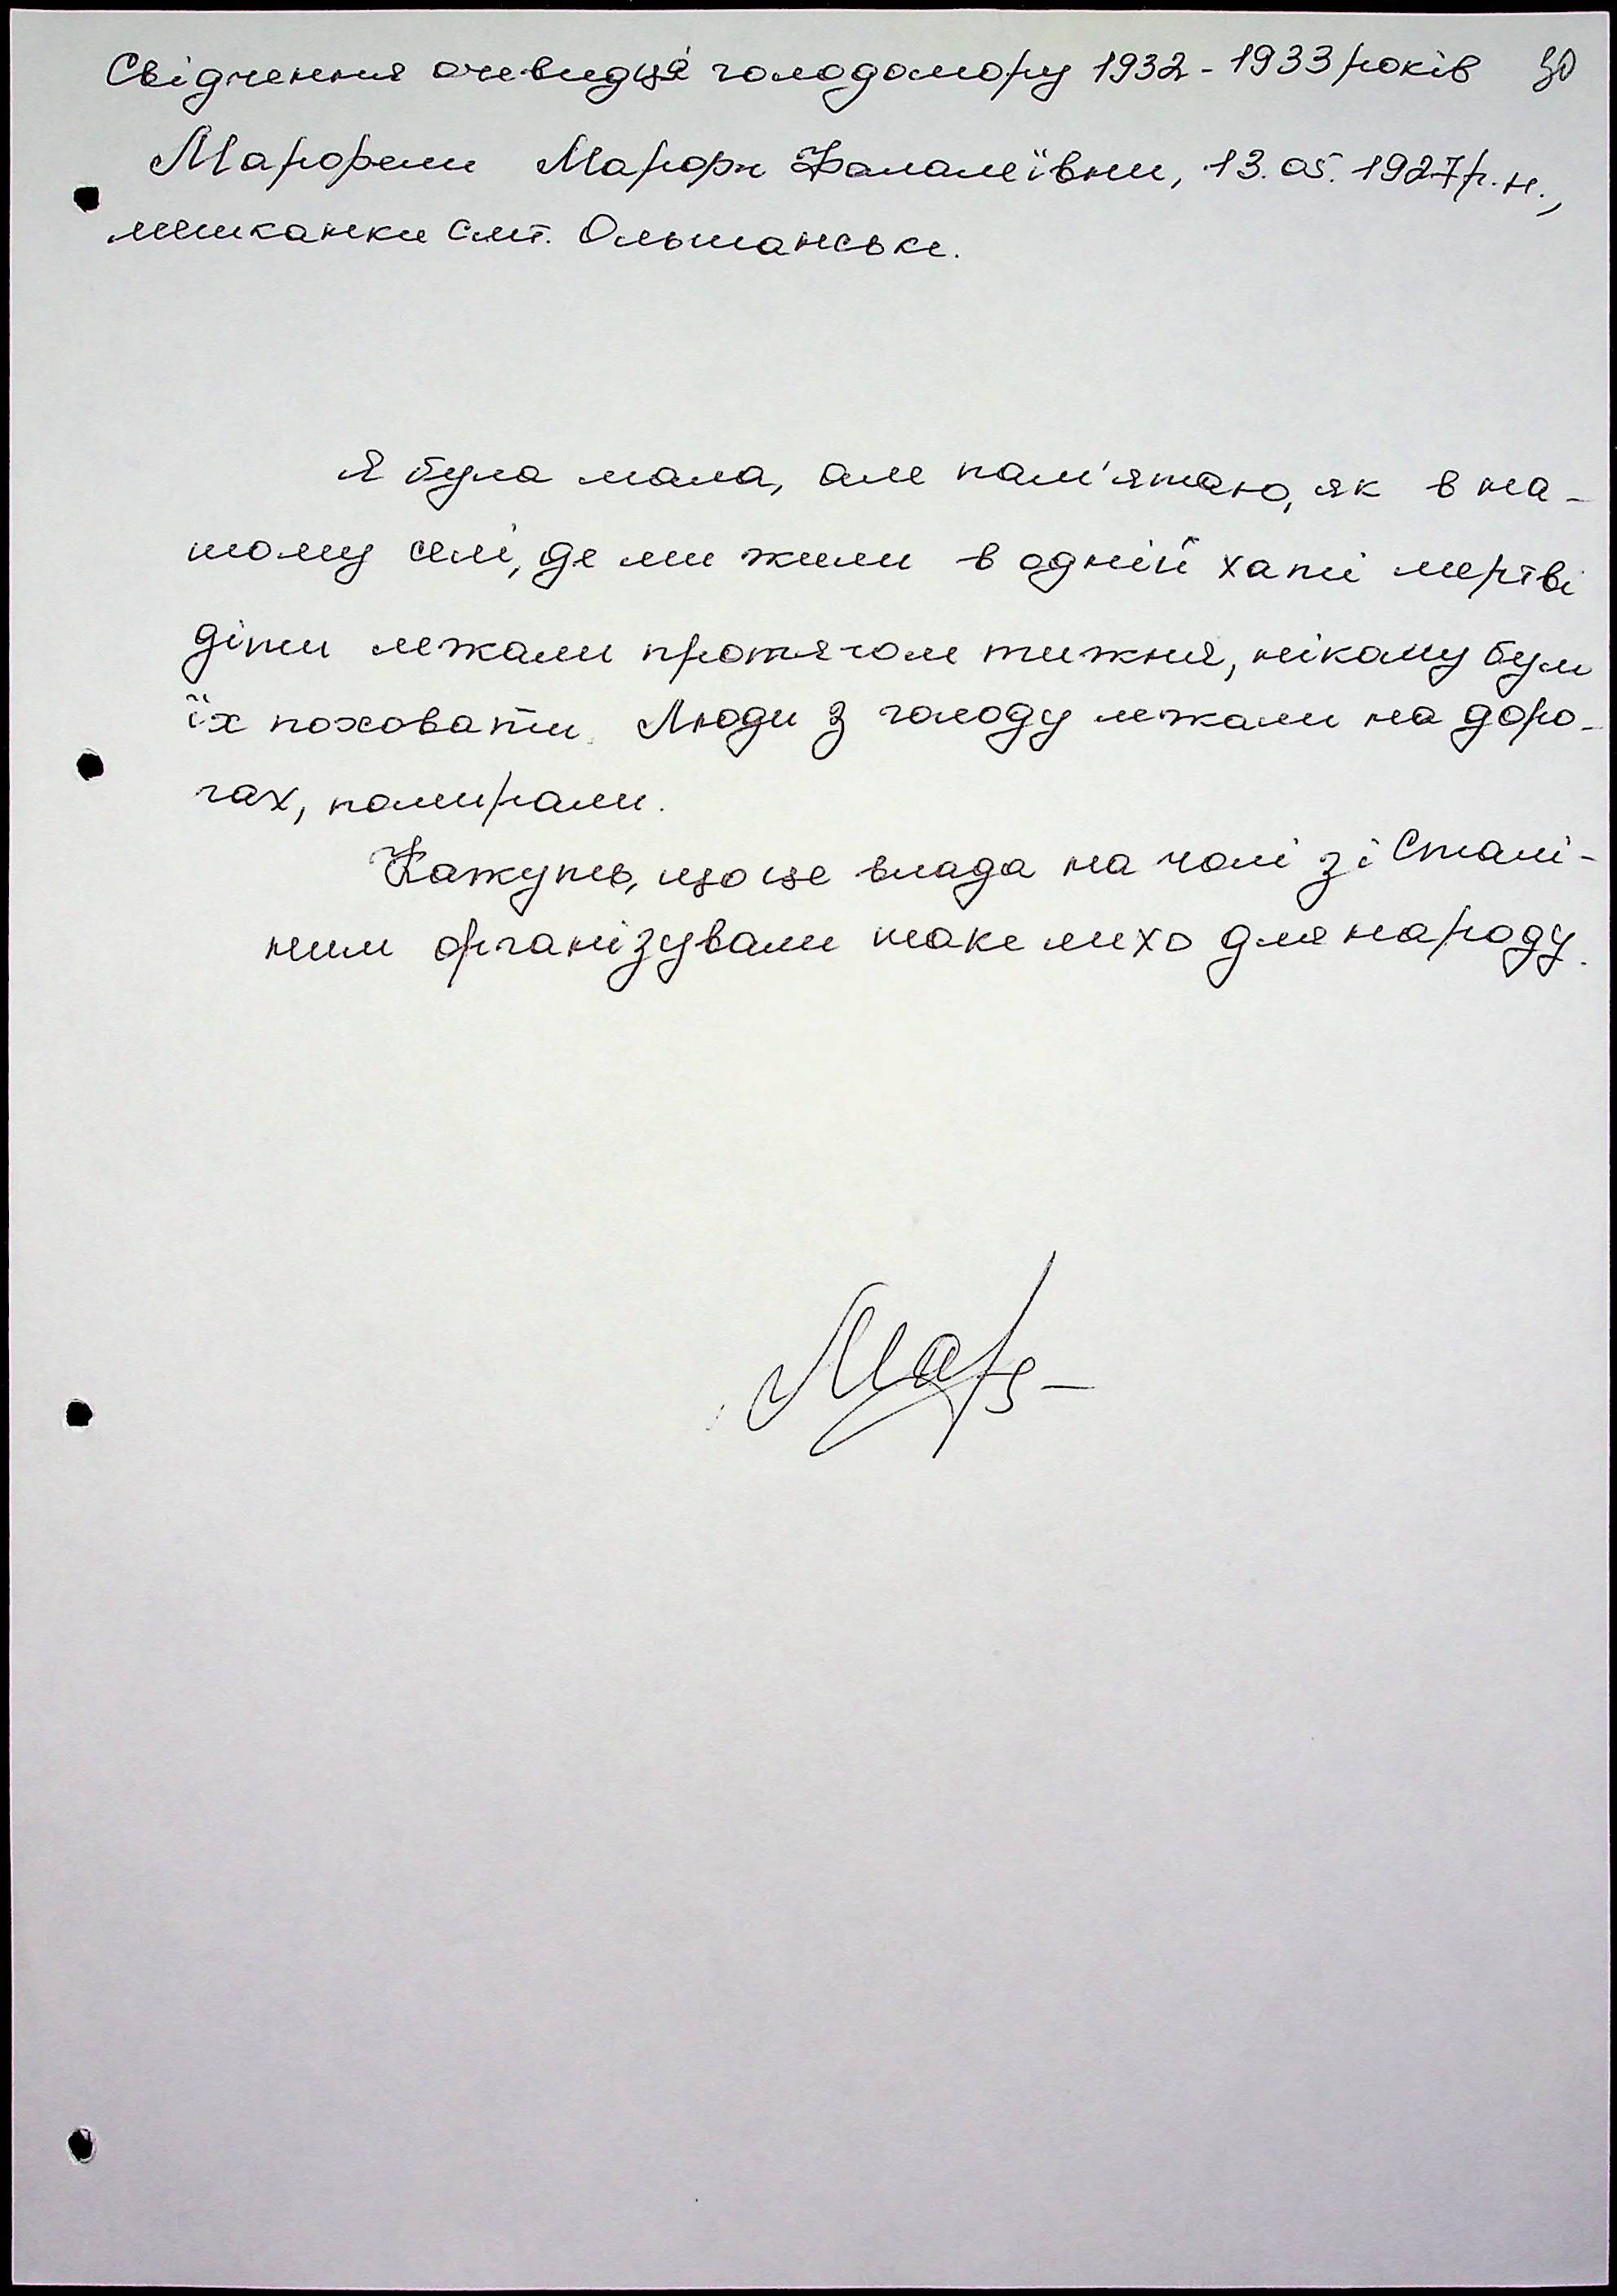 Свідчення очевидця голодомору 1932-1933 років 30
Марфи Фалалеївни, 13.05.1927р.н.,
мешканки смт. Ольшанське.
Я була мала, але пам'ятаю, як в на-
шому селі, де ми жили в одній хаті мертві
діти лежали протягом тижня, нікому було
їх поховати. Люди з голоду лежали на доро-
гах, помирали.
Кажуть, що це влада на чолі зі Сталі-
ним організували таке лихо для народу.